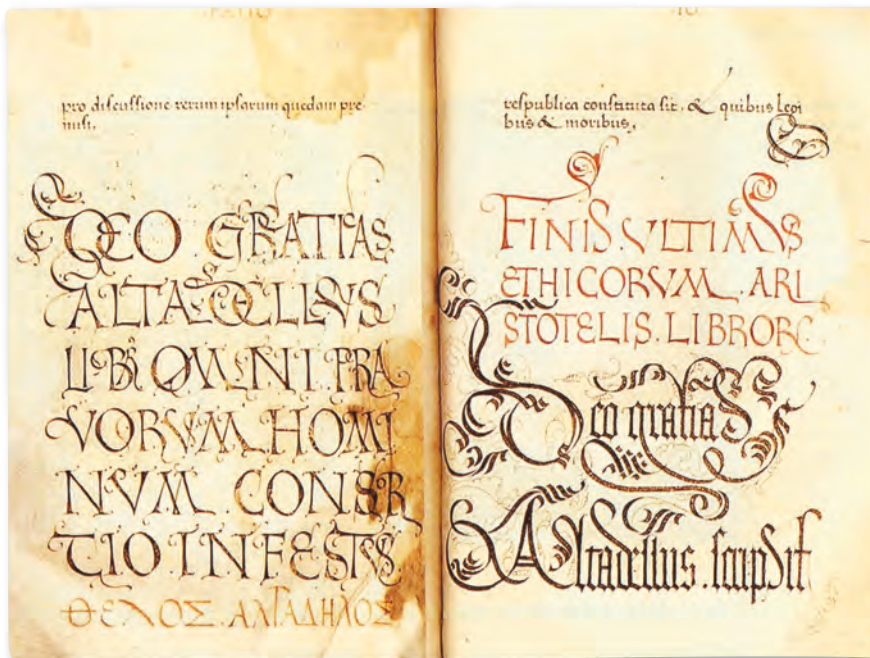 pro discussione rerum ipsarum quedam pre
misi.
DEO GRATIAS
ALTADELLVS
LIBRI OMNI PRA
VORVM HOMI
NVM CONSOR
TIO INFESTVS
ΘΕΛΟΣ ΑΛΤΑΔΗΛΟΣ
respublica constituta sit. & quibus legi
bus & moribus.
FINIS VLTIMVS
ETHICORVM ARI
STOTELIS LIBRORV
Deo gratias
Altadellus scripsit